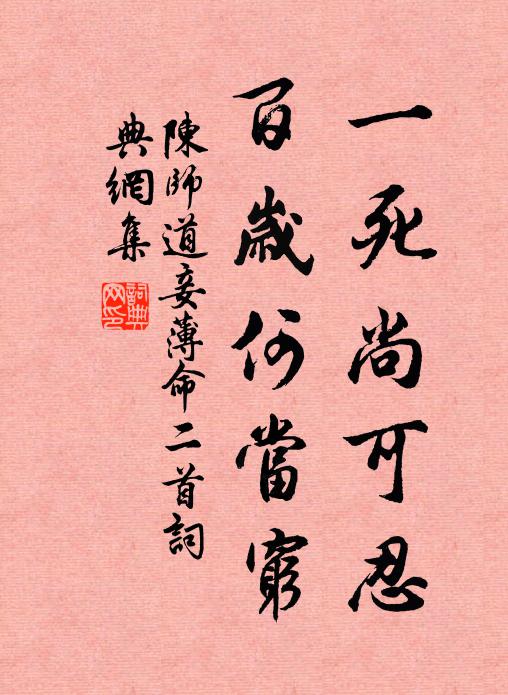 一死尚可忍
百歲何當窮
陳師道妾薄命二首詞
典網集
詞典網印